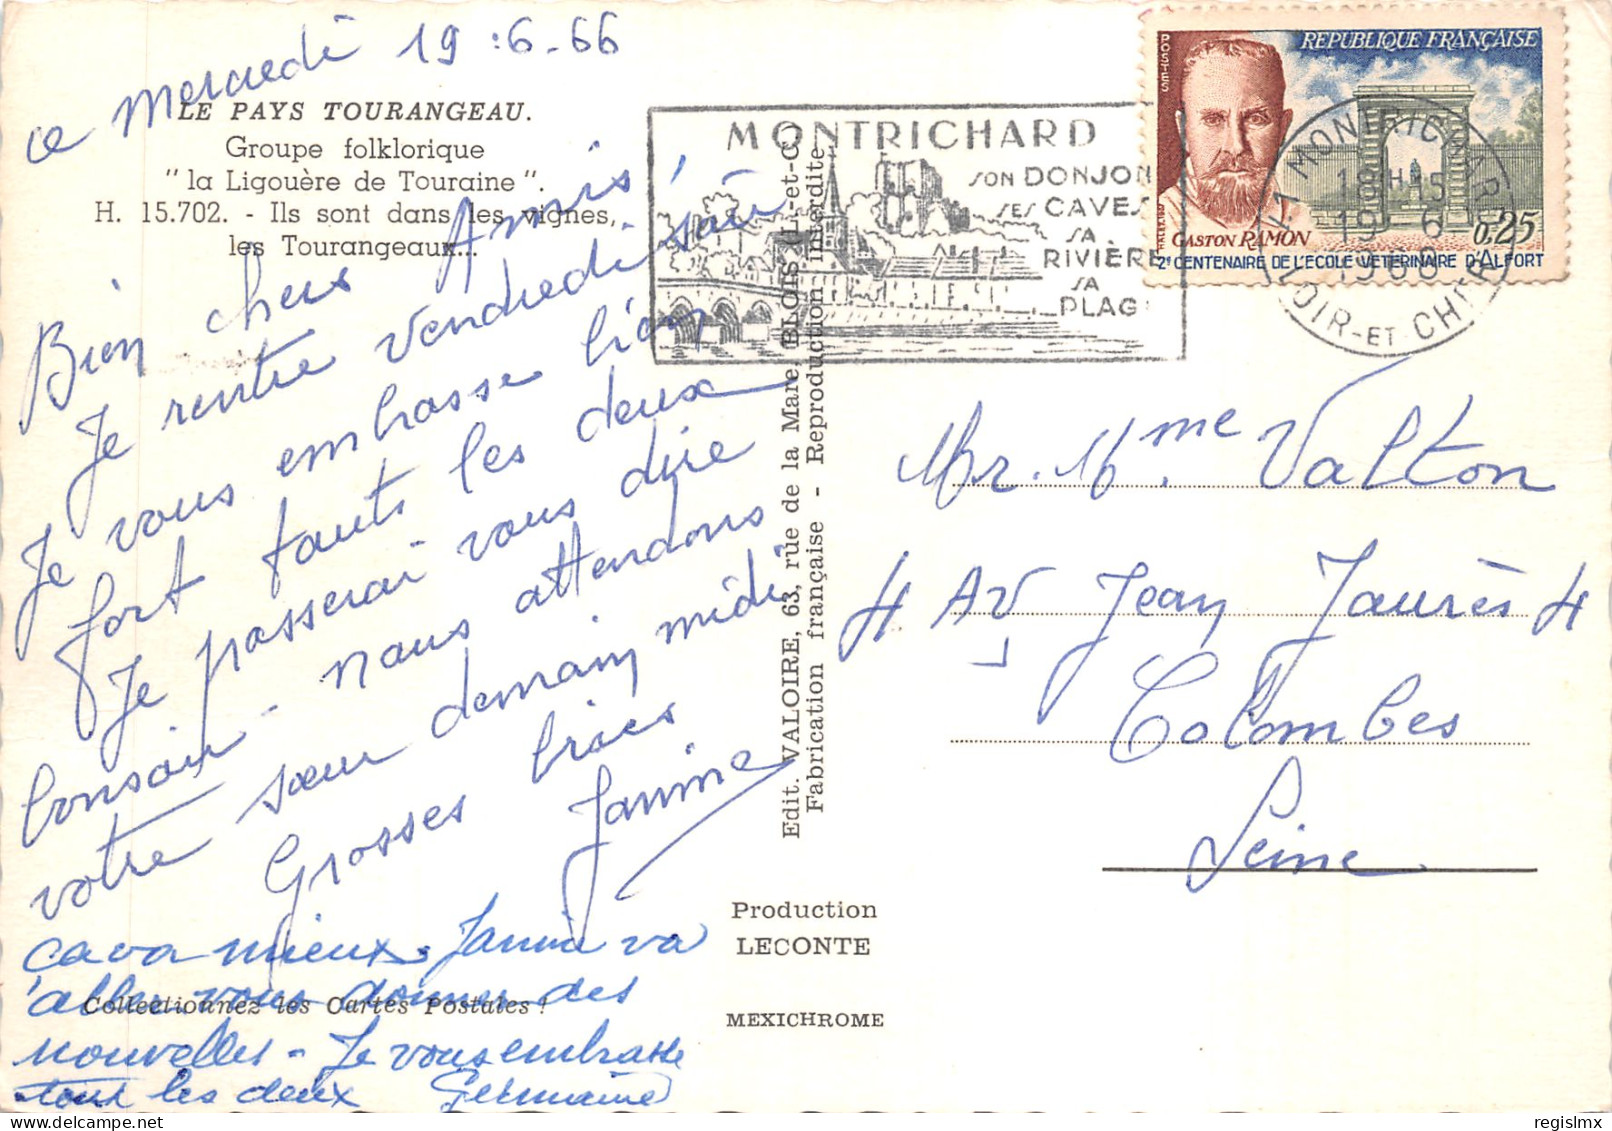 ce Mercredi 19:6-66
LE PAYS TOURANGEAU.
Groupe folklorique
"la Ligouère de Touraine".
H. 15.702. - Ils sont dans les vignes,
les Tourangeaux...
Bien chers Amis,
Je rentre vendredi soir
Je vous embrasse bien
fort touts les deux
Je passerai vous dire
bonsoir - nous attendons
votre sœur demain midi
Grosses bises
Janine
ça va mieux. Janine va
aller vous donner des
nouvelles - Je vous embrasse
tout les deux Germaine
Collectionnez les Cartes Postales !
Edit. VALOIRE, 63, rue de la Mare BLOIS (L.-et-C.)
Fabrication française - Reproduction interdite
Production
LECONTE
MEXICHROME
MONTRICHARD
SON DONJON
SES CAVES
SA
RIVIÈRE
SA
PLAG
POSTES
REPUBLIQUE FRANÇAISE
HALEY
GASTON RAMON
0,25
2e CENTENAIRE DE L'ECOLE VETERINAIRE D'ALFORT
41 MONTRICHARD
18H15
19-6
1968
LOIR-ET-CHER
Mr. Mme Valton
4 Av Jean Jaurès 4
Colombes
Seine
regislmx